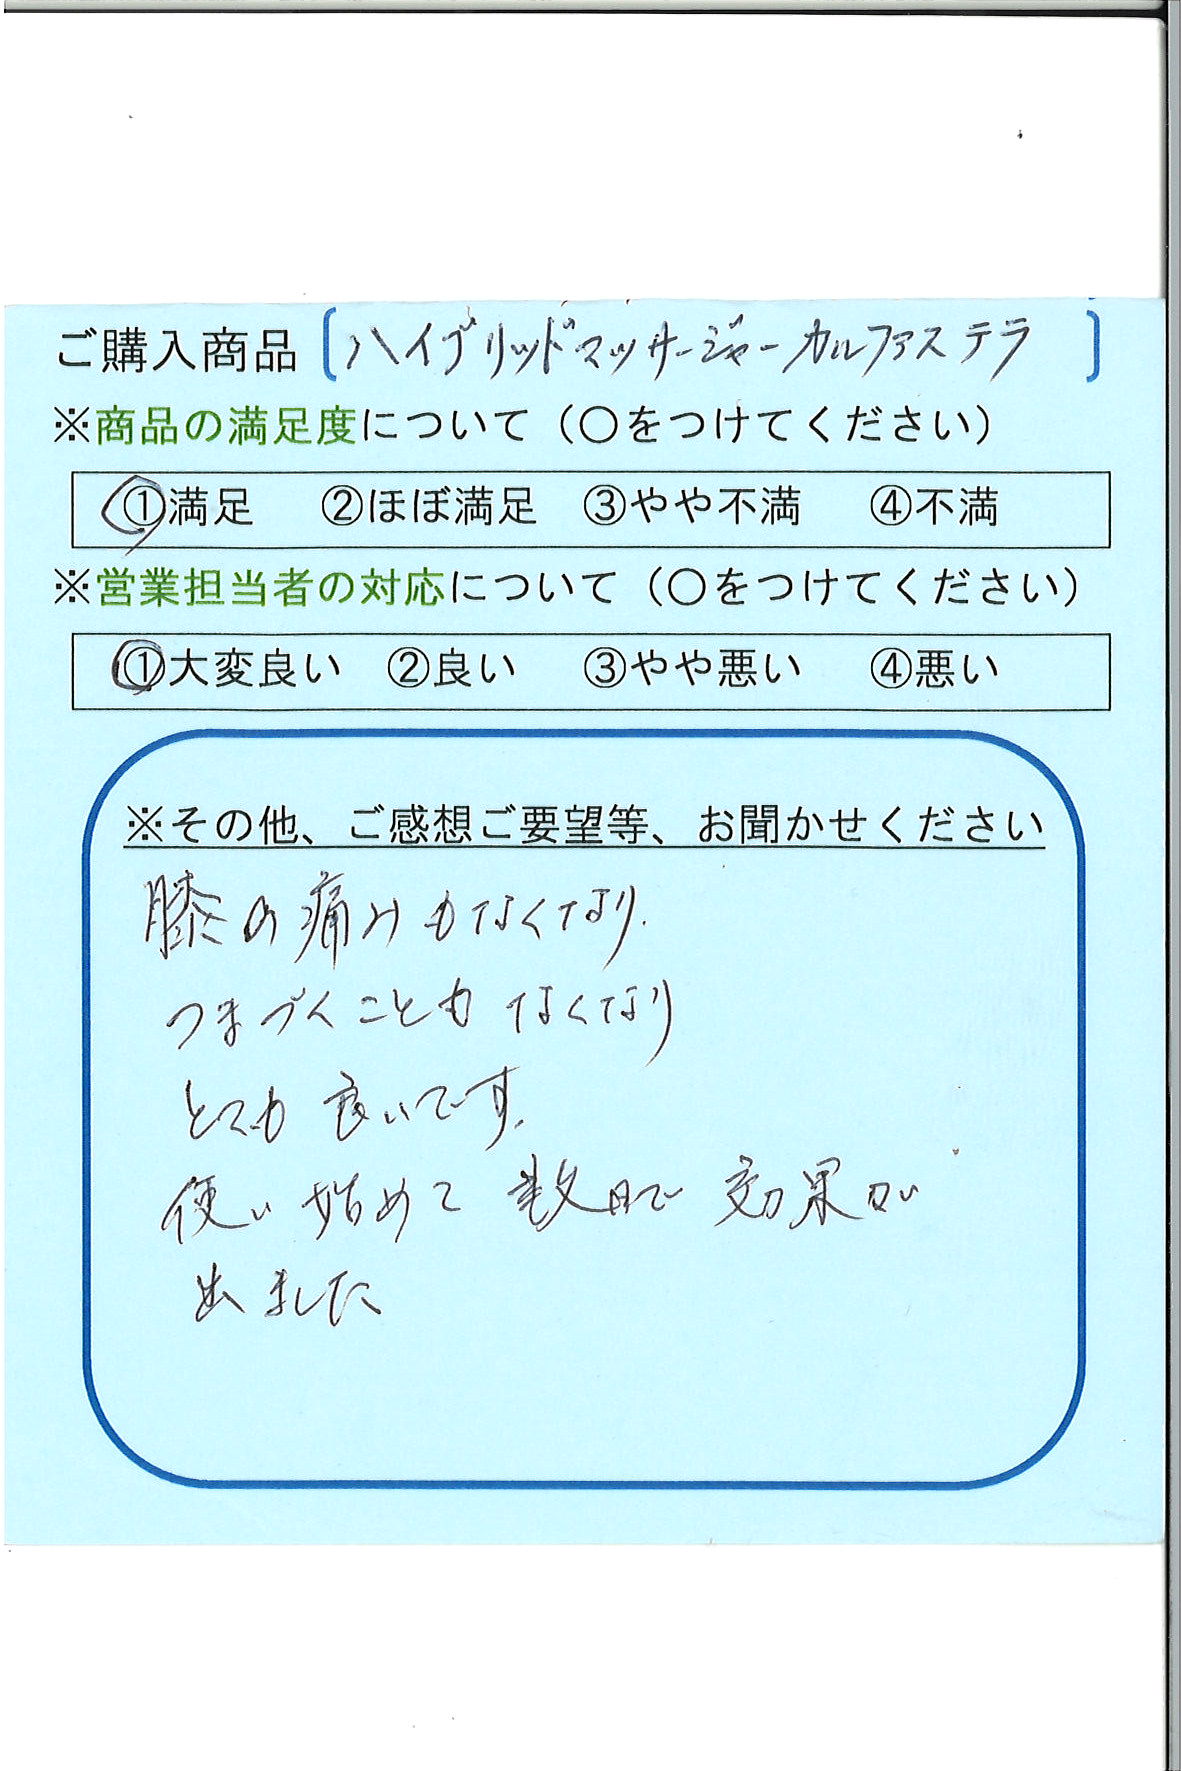 ご購入商品〔ハイブリッドマッサージャーカルファステラ〕
※商品の満足度について（○をつけてください）
①満足 ②ほぼ満足 ③やや不満 ④不満
※営業担当者の対応について（○をつけてください）
①大変良い ②良い ③やや悪い ④悪い
※その他、ご感想ご要望等、お聞かせください
膝の痛みもなくなり、
つまづくことも なくなり
とても 良いです。
使い始めて 数日で 効果が
出ました